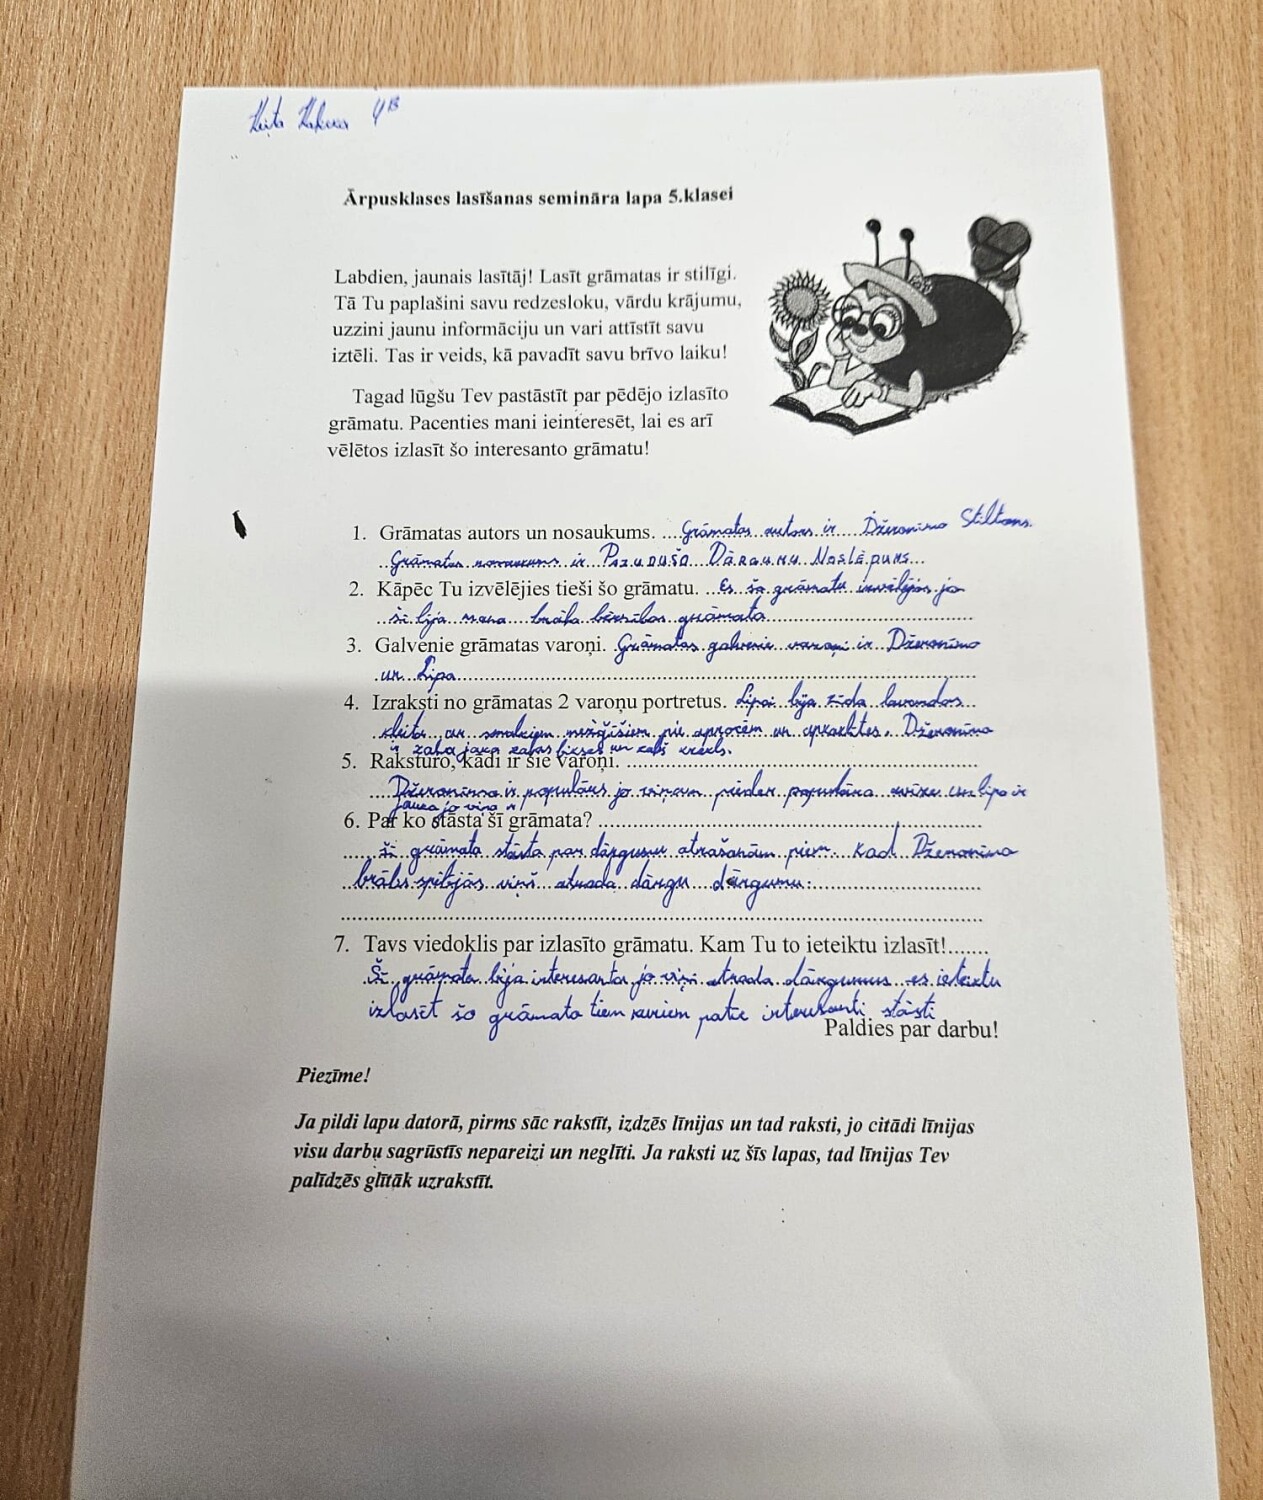 4B
Ārpusklases lasīšanas semināra lapa 5.klasei
Labdien, jaunais lasītāj! Lasīt grāmatas ir stilīgi.
Tā Tu paplašini savu redzesloku, vārdu krājumu,
uzzini jaunu informāciju un vari attīstīt savu
iztēli. Tas ir veids, kā pavadīt savu brīvo laiku!
Tagad lūgšu Tev pastāstīt par pēdējo izlasīto
grāmatu. Pacenties mani ieinteresēt, lai es arī
vēlētos izlasīt šo interesanto grāmatu!
1. Grāmatas autors un nosaukums. Grāmatas autors ir Džeronimo Stiltons.
Grāmatas nosaukums ir Pazudušo Dārgumu Noslēpums
2. Kāpēc Tu izvēlējies tieši šo grāmatu. Es šo grāmatu izvēlējos jo
šī bija mana brāļa bērnības grāmata
3. Galvenie grāmatas varoņi. Grāmatas galvenie varoņi ir Džeronimo
un Lipa
4. Izraksti no grāmatas 2 varoņu portretus. Lipai bija zīda lavandas
kleita ar smalkiem mežģīšiem pie aprocēm un apkaklītes. Džeronimo
ir zaļa jaka zaļas bikses un zaļš krekls.
5. Raksturo, kādi ir šie varoņi.
Džeronimo ir populārs jo viņam pieder populāra avīze un lipa ir
jauka jo viņa ir
6. Par ko stāsta šī grāmata?
šī grāmata stāsta par dārgumu atrašanām piem. kad Džeronimo
brālis spēlējās viņš atrada dārgu dārgumu.
7. Tavs viedoklis par izlasīto grāmatu. Kam Tu to ieteiktu izlasīt!
Šī grāmata bija interesanta jo viņi atrada dārgumus es ieteiktu
izlasīt šo grāmata tiem kuriem patīk interesanti stāsti
Paldies par darbu!
Piezīme!
Ja pildi lapu datorā, pirms sāc rakstīt, izdzēs līnijas un tad raksti, jo citādi līnijas
visu darbu sagrūstīs nepareizi un neglīti. Ja raksti uz šīs lapas, tad līnijas Tev
palīdzēs glītāk uzrakstīt.